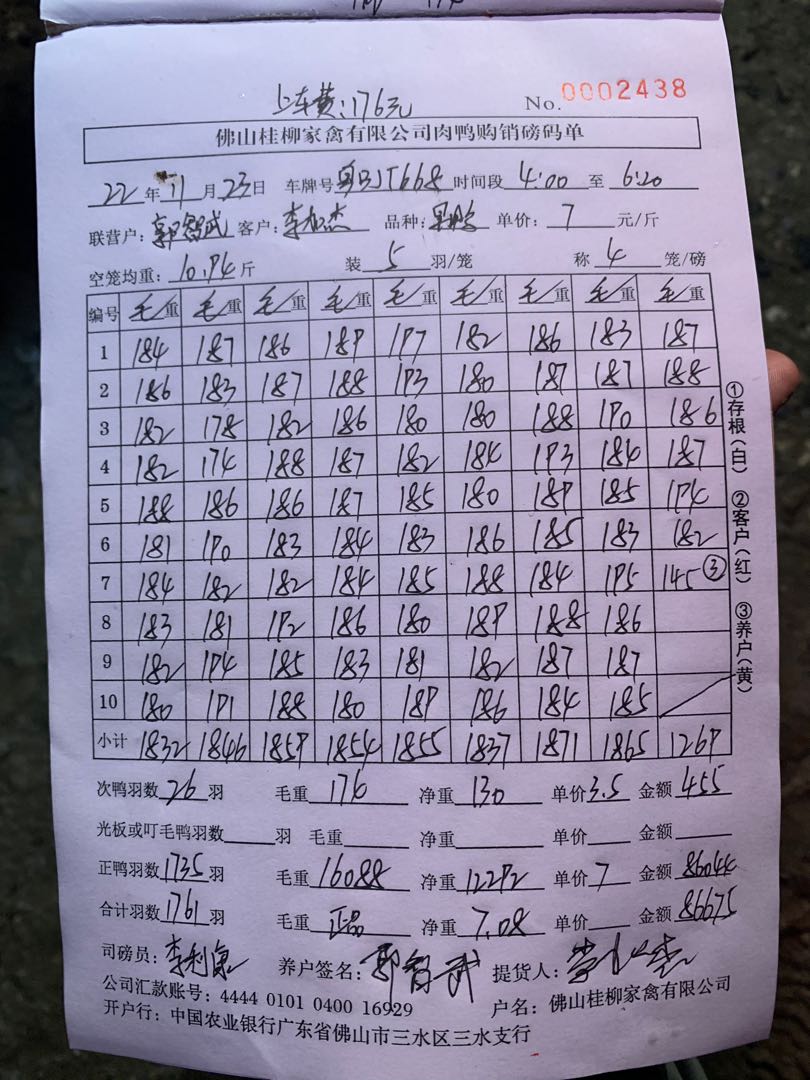 上车黄:176元
No. 0002438
佛山桂柳家禽有限公司肉鸭购销磅码单
22年11月23日 车牌号 粤BJT668 时间段 4:00 至 6:20
联营户:郭智武 客户: 品种: 单价:7元/斤
空笼均重:10.94斤 装5羽/笼 称4笼/磅
编号 毛/重 毛/重 毛/重 毛/重 毛/重 毛/重 毛/重 毛/重 毛/重
1 184 187 186 189 197 182 186 183 187
2 186 183 187 188 193 180 187 187 188
3 182 178 182 186 180 180 188 190 186
4 182 174 188 187 182 184 193 184 187
5 188 186 186 187 185 180 189 185 194
6 181 190 183 184 183 186 185 183 182
7 184 182 182 184 185 188 184 195 145 ③
8 183 181 192 186 180 189 188 186
9 182 194 185 183 181 182 187 187
10 180 191 188 180 189 186 184 185
小计 1832 1846 1859 1854 1855 1837 1871 1865 1269
①存根(白) ②客户(红) ③养户(黄)
次鸭羽数26羽 毛重174 净重130 单价3.5 金额455
光板或叮毛鸭羽数 羽 毛重 净重 单价 金额
正鸭羽数1735羽 毛重16088 净重12292 单价7 金额86044
合计羽数1761羽 毛重正品 净重7.08 单价 金额86675
司磅员: 养户签名:郭智武 提货人:
公司汇款账号:4444 0101 0400 16929 户名:佛山桂柳家禽有限公司
开户行:中国农业银行广东省佛山市三水区三水支行